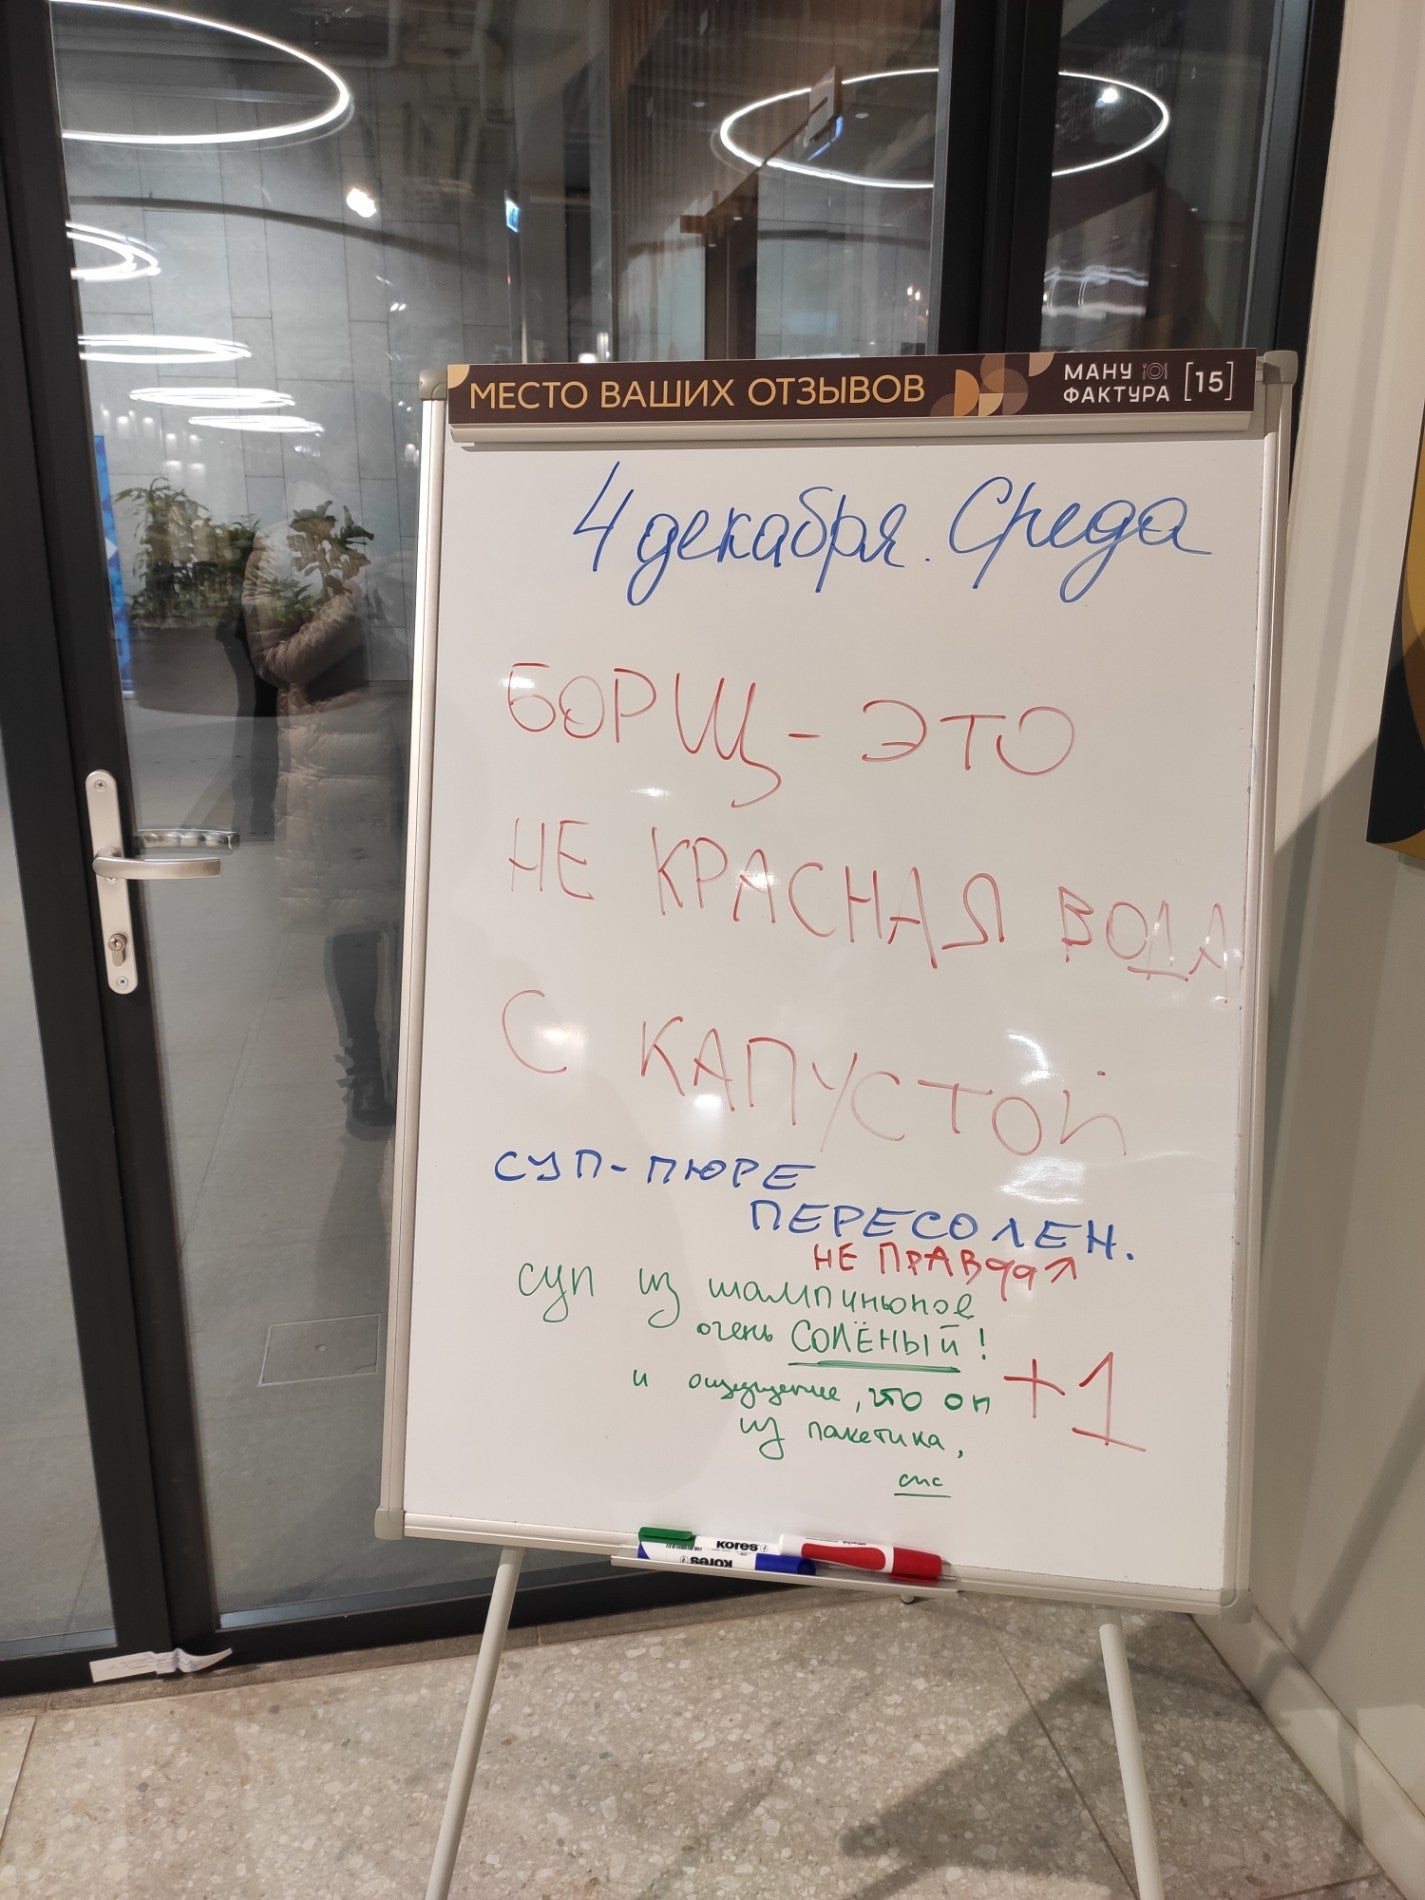 МЕСТО ВАШИХ ОТЗЫВОВ
МАНУ
ФАКТУРА [15]
4 декабря. Среда
БОРЩ - ЭТО
НЕ КРАСНАЯ ВОДА
С КАПУСТОЙ
СУП-ПЮРЕ
ПЕРЕСОЛЕН.
НЕ ПРАВДА↗
суп из шампиньонов
очень СОЛЁНЫЙ!
и ощущение, что он
из пакетика,
спс
+1
kores
kores